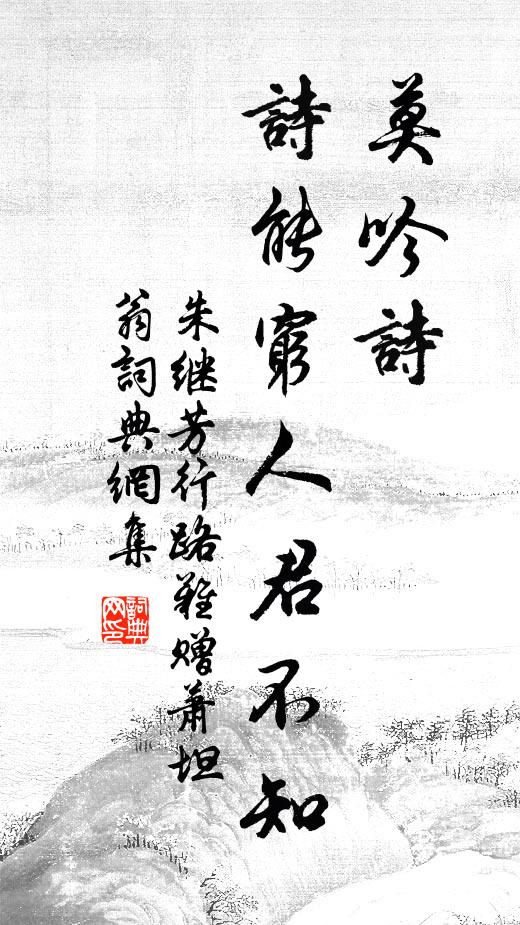 莫吟詩
詩能窮人君不知
朱继芳行路難赠萧坦
翁詞典網集
詞典
网印